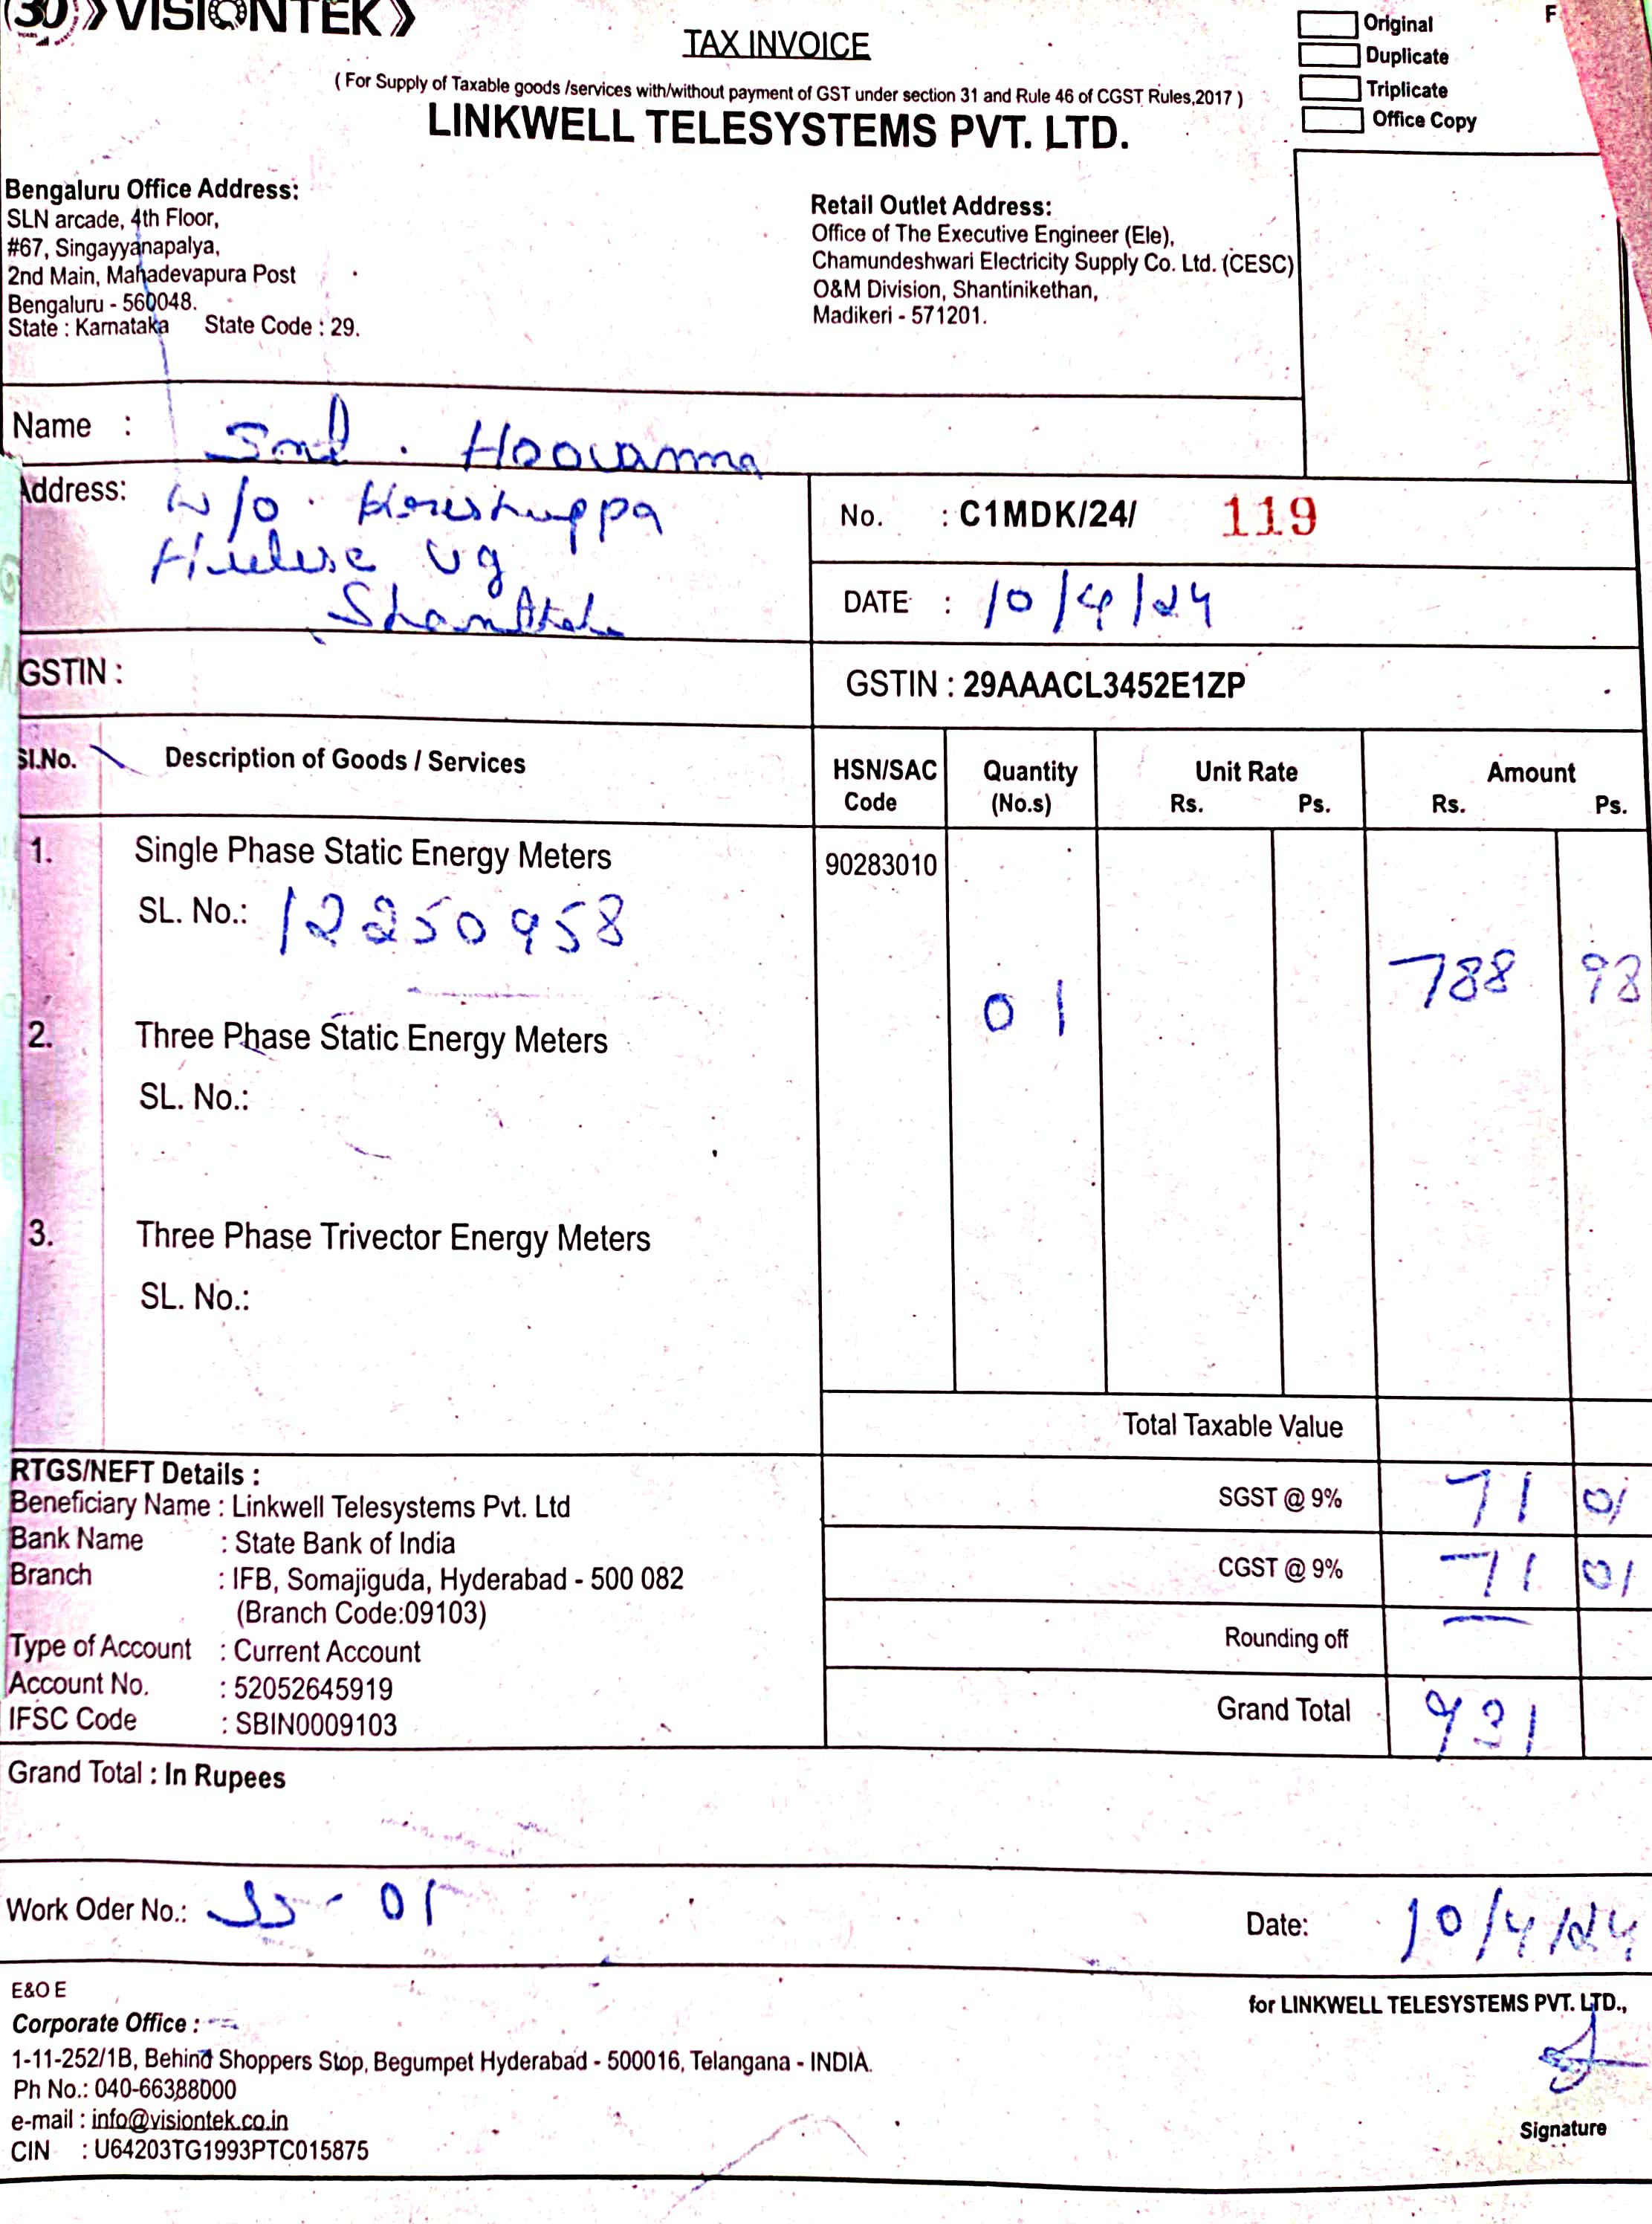 30 VISIONTEK
TAX INVOICE
Original
F
Duplicate
Triplicate
Office Copy
( For Supply of Taxable goods /services with/without payment of GST under section 31 and Rule 46 of CGST Rules,2017 )
LINKWELL TELESYSTEMS PVT. LTD.
Bengaluru Office Address:
SLN arcade, 4th Floor,
#67, Singayyanapalya,
2nd Main, Mahadevapura Post
Bengaluru - 560048.
State : Karnataka State Code : 29.
Retail Outlet Address:
Office of The Executive Engineer (Ele),
Chamundeshwari Electricity Supply Co. Ltd. (CESC)
O&M Division, Shantinikethan,
Madikeri - 571201.
Name : Smt. Hoovamma
Address: W/o.
No. : C1MDK/24/ 119
DATE : 10/4/24
GSTIN :
GSTIN : 29AAACL3452E1ZP
Sl.No. Description of Goods / Services HSN/SAC Code Quantity (No.s) Unit Rate Rs. Ps. Amount Rs. Ps.
1. Single Phase Static Energy Meters 90283010
SL. No.: 12250958
01 788 98
2. Three Phase Static Energy Meters
SL. No.:
3. Three Phase Trivector Energy Meters
SL. No.:
Total Taxable Value
SGST @ 9% 71 01
CGST @ 9% 71 01
Rounding off
Grand Total 931
RTGS/NEFT Details :
Beneficiary Name : Linkwell Telesystems Pvt. Ltd
Bank Name : State Bank of India
Branch : IFB, Somajiguda, Hyderabad - 500 082
(Branch Code:09103)
Type of Account : Current Account
Account No. : 52052645919
IFSC Code : SBIN0009103
Grand Total : In Rupees
Work Oder No.: SS - 01
Date: 10/4/24
E&O E
for LINKWELL TELESYSTEMS PVT. LTD.,
Corporate Office :
1-11-252/1B, Behind Shoppers Stop, Begumpet Hyderabad - 500016, Telangana - INDIA.
Ph No.: 040-66388000
e-mail : info@visiontek.co.in
CIN : U64203TG1993PTC015875
Signature